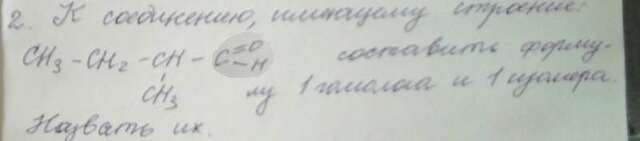 2. К соединению, имеющему строение:
CH3 - CH2 - CH - C =O -H составить форму-
CH3 лу 1 гомолога и 1 изомера.
Назвать их.